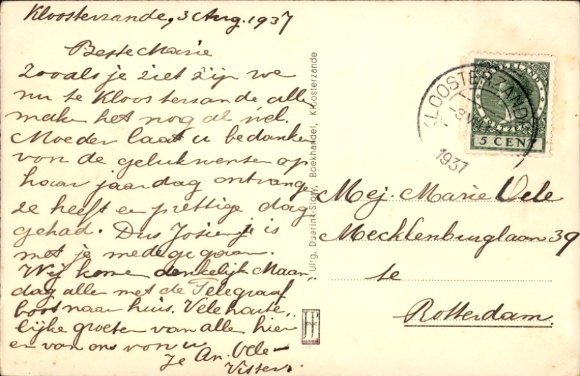 Kloosterzande, 3 Aug. 1937
Beste Marie
Zooals je ziet zijn we
nu te Kloosterzande alle
maken het nog al wel.
Moeder laat u bedanken
voor de gelukwensen op
haar jaardag ontvangen
ze heeft en prettige dag
gehad. Dus Josientje is
met je mede gegaan.
Wij komen denkelijk Maan
dag allen met de Telegraaf
boot naar huis. Vele harte,,
lijke groeten van allen hier
en van ons voor u
Je An. Vele-
Visser.
Uitg. Duerink-Story, Boekhandel, Kloosterzande
KLOOSTERZANDE
1937
5 CENT
Mej. Marie Vele
Mecklenburglaan 39
te
Rotterdam.